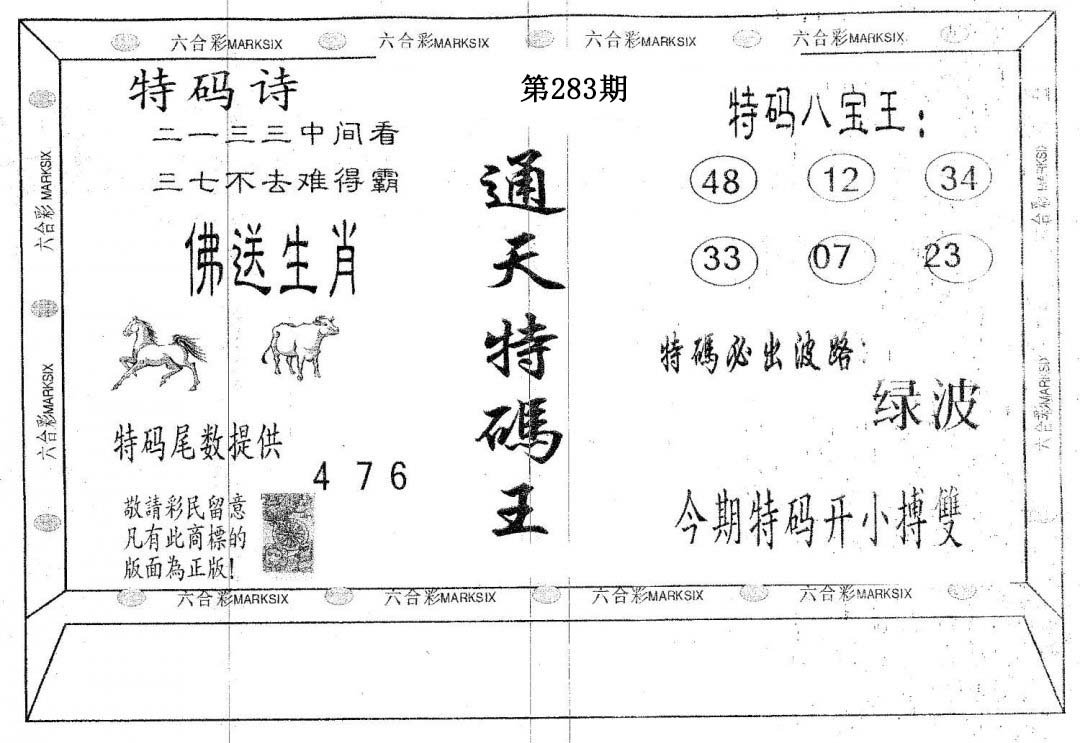 六合彩MARKSIX 六合彩MARKSIX 六合彩MARKSIX 六合彩MARKSIX
六合彩MARKSIX
六合彩MARKSIX
特码诗
二一三三中间看
三七不去难得霸
佛送生肖
特码尾数提供
4 7 6
敬請彩民留意
凡有此商標的
版面為正版!
第283期
通天特碼王
特码八宝王:
48 12 34
33 07 23
特碼必出波路:
绿波
今期特码开小搏雙
六合彩MARKSIX
六合彩MARKSIX
六合彩MARKSIX 六合彩MARKSIX 六合彩MARKSIX 六合彩MARKSIX